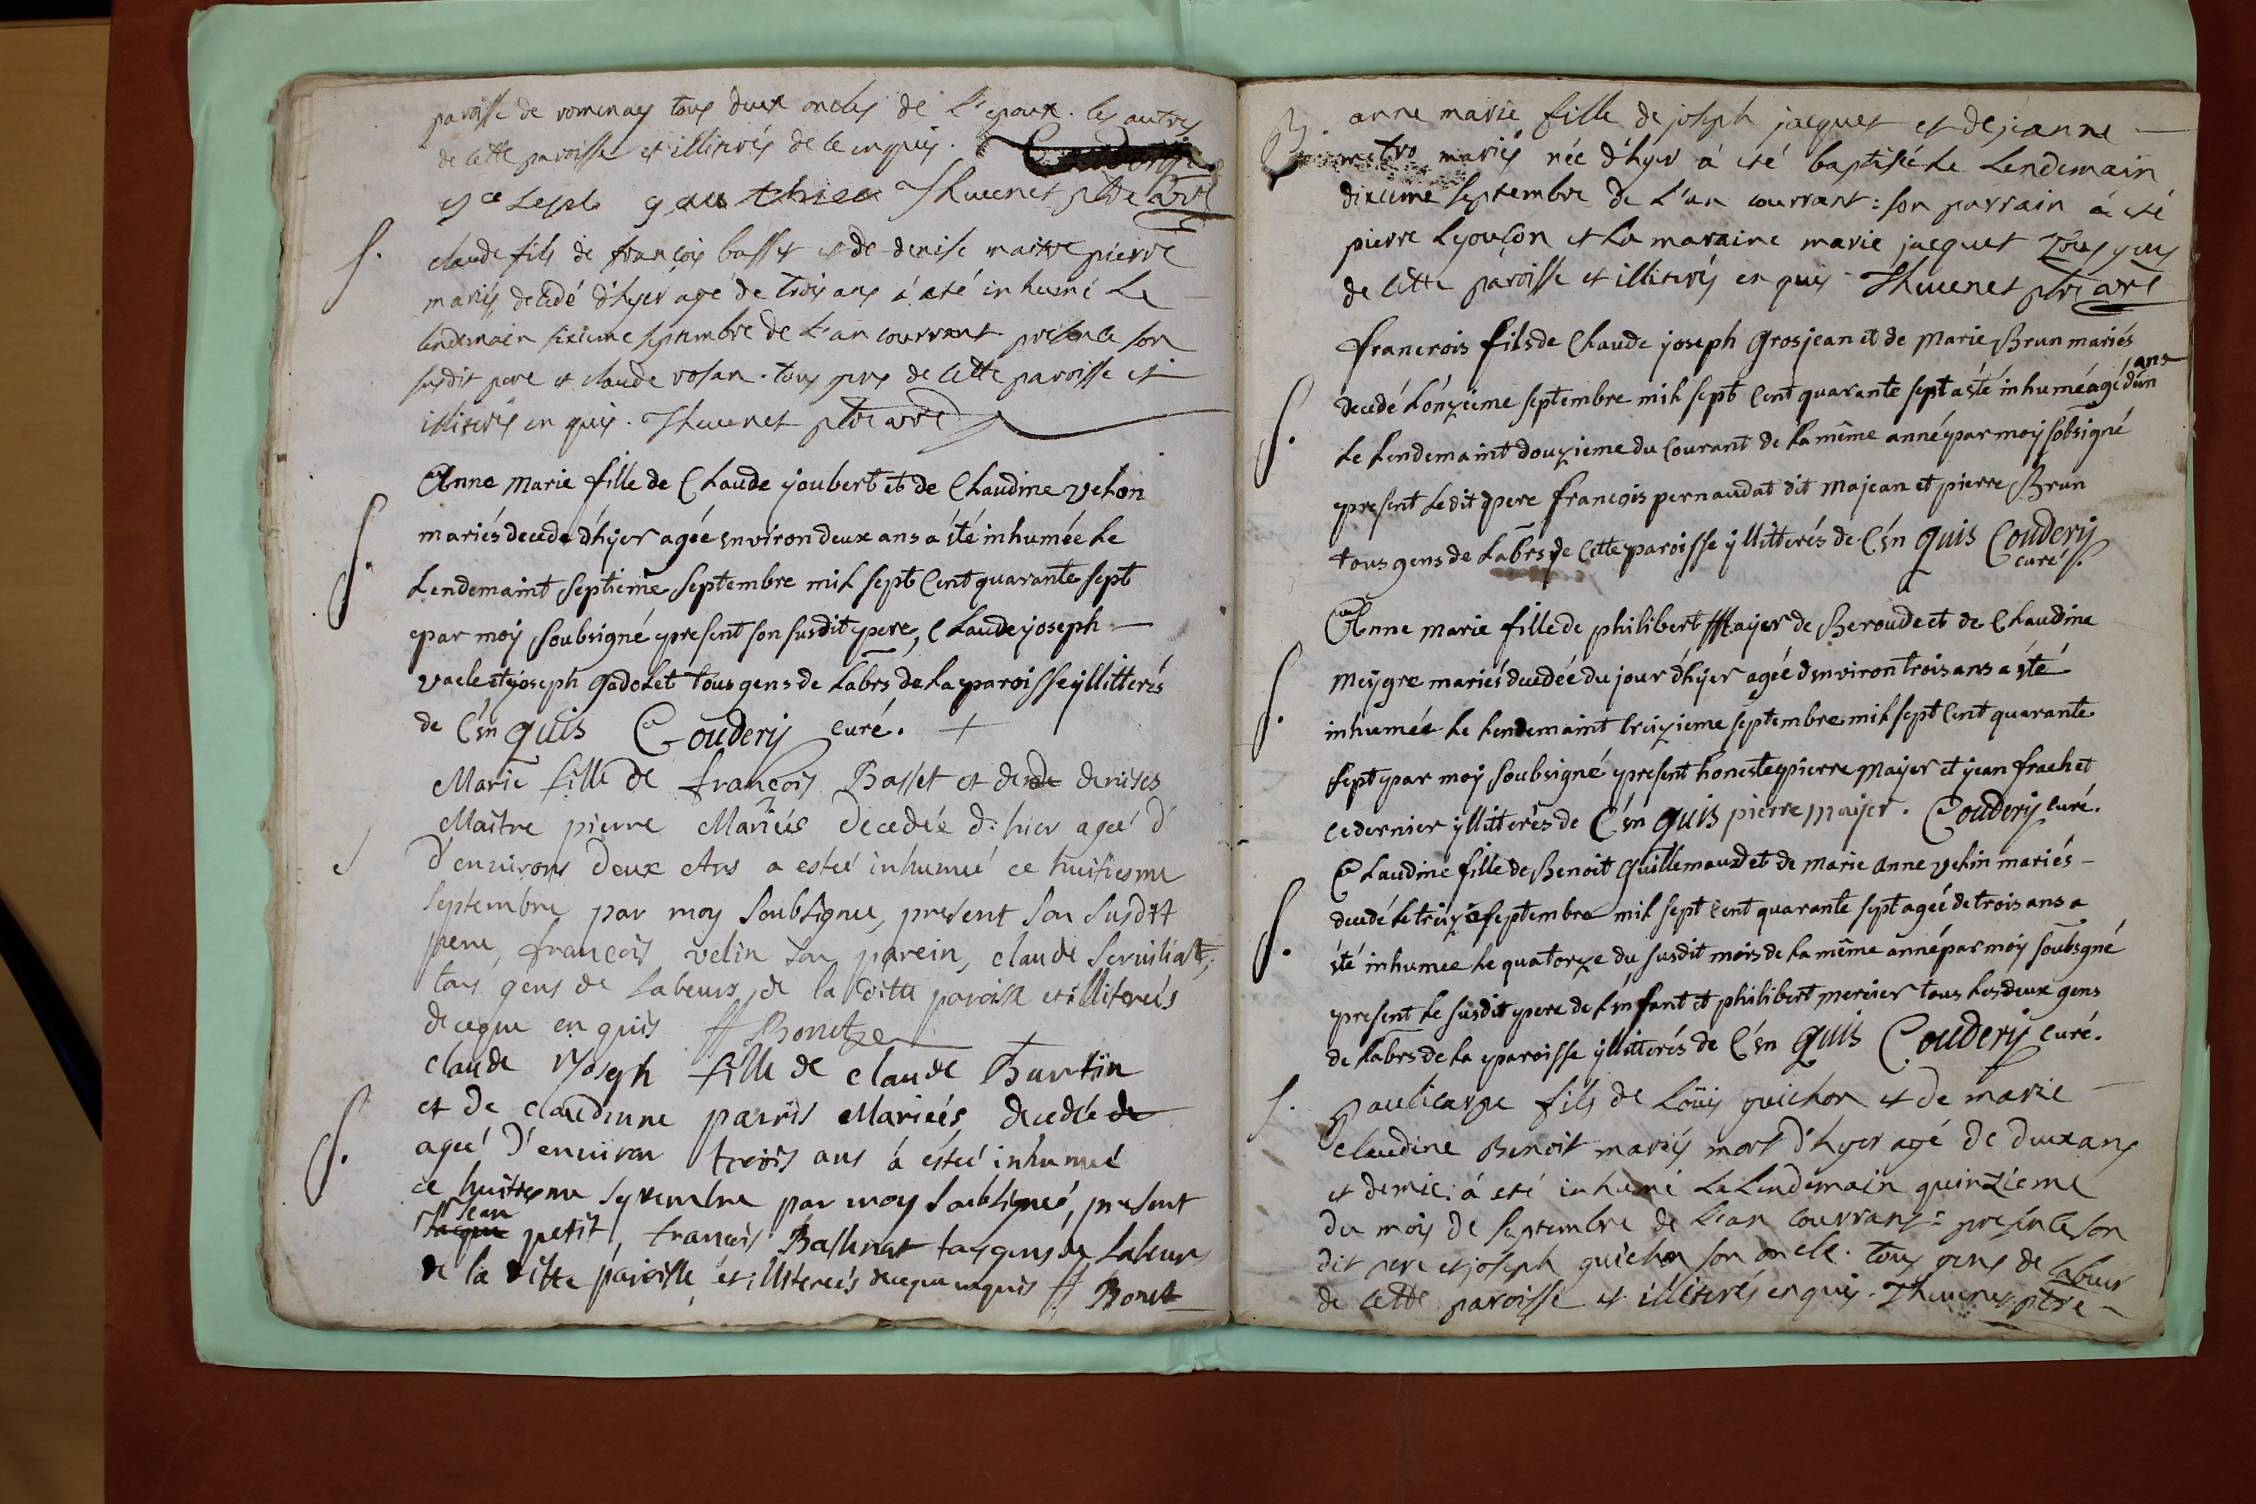 paroisse de romenay tous deux oncles de l'epoux. les autres
de cette paroisse et illiterés de ce enquis.
Thuenet ptre
S. claude fils de françois basset et de denise maitre pierre
mariés decedé d'hyer agé de trois ans á eté inhumé le
lendemain sixieme septembre de l'an courrant presence son
susdit pere et claude rosan. tous gens de cette paroisse et
illiterés enquis. Thuenet ptre
S. Anne Marie fille de Claude joubert et de Claudine velon
mariés decede d'hyer agée environ deux ans á été inhumée le
lendemaint septieme septembre mil sept Cent quarante sept
par moy soubsigné present son susdit pere, Claude joseph
vaele et joseph gadolet tous gens de labrs de la paroisse yllitterés
de C'enquis Coudery curé.
S Marie fille de françois Basset et de de denises
Maitre pierre Mariés decedée d'hier ageé d'
d'environs deux Ans a esteé inhumeé ce huitiesme
septembre par moy soubsignee, present son susdit
pere, françois velin son parein, claude
tous gens de labeurs de la ditte paroisse et illitereés
de ceque enquis ff Bonet
S. claude Joseph fille de claude Burtin
et de claudinne parris Marieés, decedée de
ageé d'environ trois ans á esteé inhumeé
ce huitiesme septembre par moy soubsigneé, present
Jean
Jaque petit, francois tous gens de Labeurs
de la ditte paroisse et illitereés deceque enquis ff Bonet
B. anne marie fille de joseph jacquet et de jeanne
metro mariés née d'hyer á eté baptisée le Lendemain
dixieme septembre de l'an courrant: son parrain á eté
pierre Lyouçon et la maraine marie jacquet Tous gens
de cette paroisse et illiterés enquis. Thuenet ptre
francrois fils de Claude joseph grosjean et de Marie Brun mariés
ans
S. decedé l'onzeime septembre mil sept Cent quarante sept a été inhumé agé d'un
Le Lendemaint douzieme du Courant de la même année par moy sobsigné
present ledit pere françois pernaudat dit majean et pierre Brun
tous gens de labrs de Cette paroisse yllitterés de C'enquis Coudery
curé.
S. Anne marie fille de philibert Mayer de Beroude et de Claudine
meÿgre mariés decedée du jour d'hÿer ageé d'environ trois ans a été
inhumée le lendemaint treizieme septembre mil sept Cent quarante
sept par moy soubsigné present honeste pierre mayer et jean frachet
ce dernier yllitterés de C'enquis pierre mayer. Coudery curé.
S. Claudine fille de Benoit Guillemaud et de marie Anne velin mariés
decedé le treize septembre mil sept Cent quarante sept ageé de trois ans a
été inhumee le quatorze du susdit mois de la même année par moy soubsgné
present le susdit pere de l'enfant et philibert mercier tous les deux gens
de labrs de la paroisse yllitterés de C'enquis Coudery curé.
S. paulicarpe fils de Loüis guichon et de marie
claudine Benoit mariés mort d'hyer agé de deux ans
et demie: á eté inhumé le Lendemain quinzieme
du mois de septembre de l'an courrant: presence son
dit pere et joseph guichon son oncle. Tous gens de labeur
de cette paroisse et illiterés enquis. Thuenet ptre